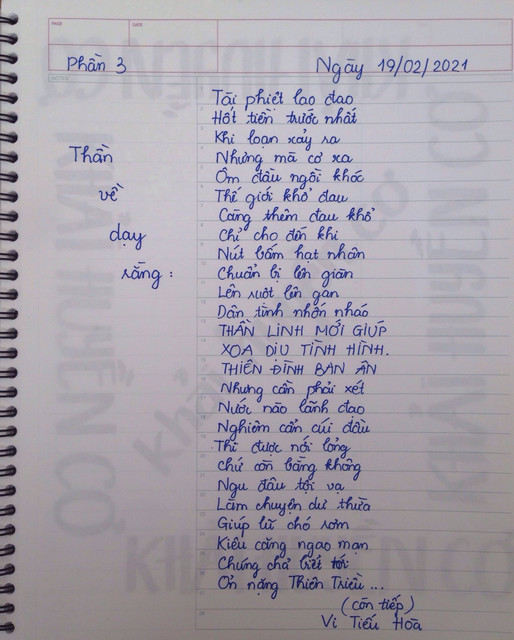 PAGE DATE
Phần 3 Ngày 19/02/2021
NOTES
Thần
về
dạy
rằng :
Tài phiệt lao đao
Hốt tiền trước nhất
Khi loạn xảy ra
Nhưng mà cơ xa
Ôm đầu ngồi khóc
Thế giới khổ đau
Càng thêm đau khổ
Chỉ cho đến khi
Nút bấm hạt nhân
Chuẩn bị lên giàn
Lên ruột lên gan
Dân tình nhốn nháo
THẦN LINH MỚI GIÚP
XOA DỊU TÌNH HÌNH.
THIÊN ĐÌNH BAN ÂN
Nhưng cần phải xét
Nước nào lãnh đạo
Nghiêm cẩn cúi đầu
Thì được nới lỏng
chứ còn bằng không
Ngu đâu tội vạ
Làm chuyện dư thừa
Giúp lũ chó sơm
Kiêu căng ngạo mạn
Chứng chả biết tới
Ơn nặng Thiên Triều ...
(còn tiếp)
Vi Tiếu Hoà